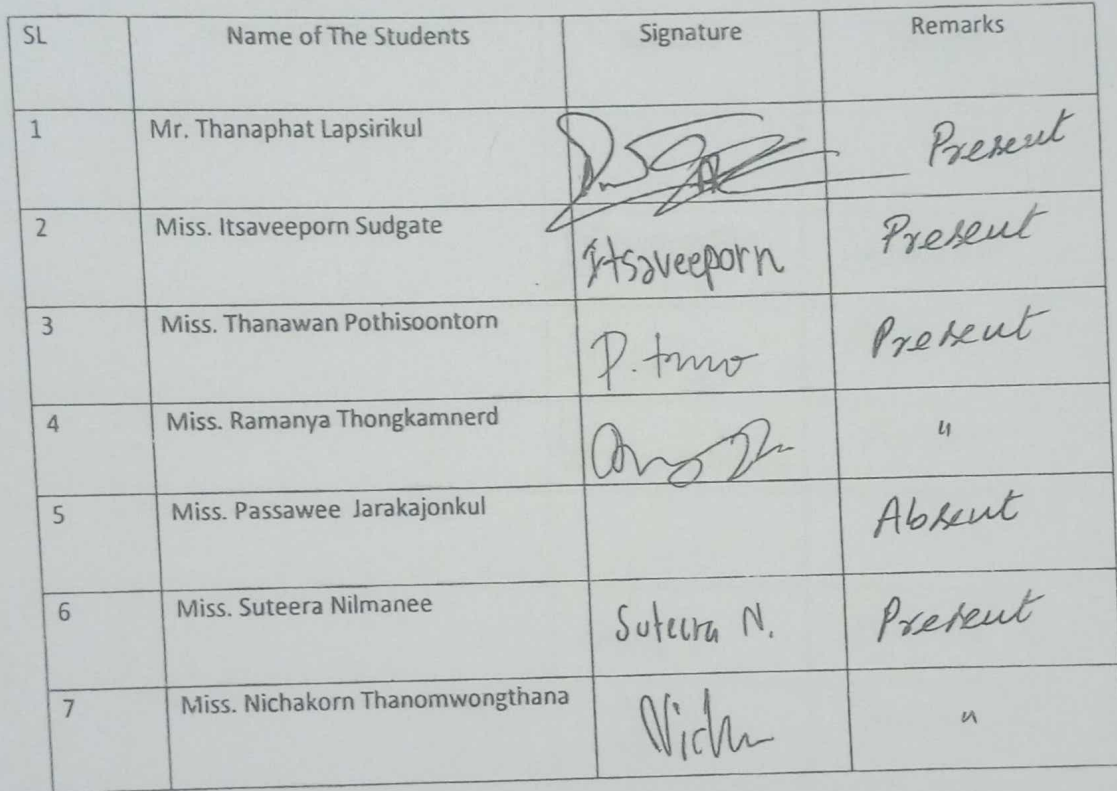 SL Name of The Students Signature Remarks
1 Mr. Thanaphat Lapsirikul Present
2 Miss. Itsaveeporn Sudgate Itsaveeporn Present
3 Miss. Thanawan Pothisoontorn Present
4 Miss. Ramanya Thongkamnerd "
5 Miss. Passawee Jarakajonkul Absent
6 Miss. Suteera Nilmanee Suteera N. Present
7 Miss. Nichakorn Thanomwongthana "